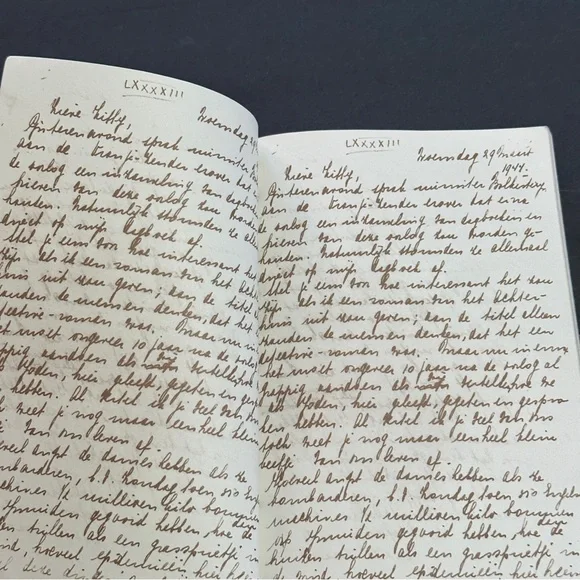 LXXXXIII
Lieve Kitty,
Woensdag 29
Gisterenavond sprak minister
aan de Oranje-zender erover dat
de oorlog een inzameling van dagboe
van deze oorlog zou worden
houden. Natuurlijk stormden ze alle
direct op mijn dagboek af.
Stel je eens voor hoe interessant het
zijn als ik een roman van het
huis uit zou geven; aan de titel
zouden de mensen denken, dat het
detective-roman was. Maar nu
het moet ongeveer 10 jaar na de oorlog
grappig aandoen als wij vertellen hoe
als Joden, hier geleefd, gegeten en
hebben. Al vertel ik je veel van
toch weet je nog maar een heel klein
Van ons leven af.
Hoeveel angst de dames hebben als de
bombarderen, b.v. Zondag toen, 350
machines ½ millioen kilo bommen
IJmuiden gegooid hebben, hoe dan
trillen als een grassprietje in
wind, hoeveel epidemieën hier
LXXXXIII
Woensdag 29 Maart
1944.
Lieve Kitty,
Gisterenavond sprak minister Bolkesteyn
aan de Oranje-zender erover dat er na
de oorlog een inzameling van dagboeken en
van deze oorlog zou worden ge-
houden. Natuurlijk stormden ze allemaal
direct op mijn dagboek af.
Stel je eens voor hoe interessant het zou
zijn als ik een roman van het Achter-
huis uit zou geven; aan de titel alleen
zouden de mensen denken, dat het een
detective-roman was. Maar nu in
het moet ongeveer 10 jaar na de oorlog al
grappig aandoen als wij vertellen hoe we
als Joden, hier geleefd, gegeten en gespro
hebben. Al vertel ik je veel van ons
toch weet je nog maar een heel klein
beetje Van ons leven af.
Hoeveel angst de dames hebben als ze
bombarderen, b.v. Zondag toen, 350
machines ½ millioen kilo bommen
op IJmuiden gegooid hebben, hoe dan de
huizen trillen als een grassprietje in
de wind, hoeveel epidemieën hier